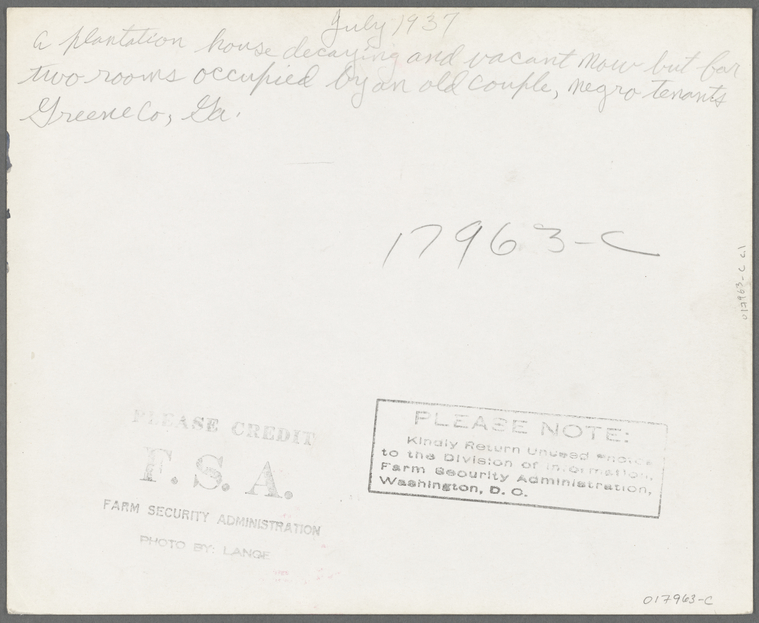 July 1937
a plantation house decaying and vacant now but for
two rooms occupied by an old couple, negro tenants
Greene Co, Ga.
17963-C
017963-C c1
PLEASE CREDIT
F. S. A.
FARM SECURITY ADMINISTRATION
PHOTO BY: LANGE
PLEASE NOTE:
Kindly Return Unused Photos
to the Division of Information,
Farm Security Administration,
Washington, D. C.
017963-C